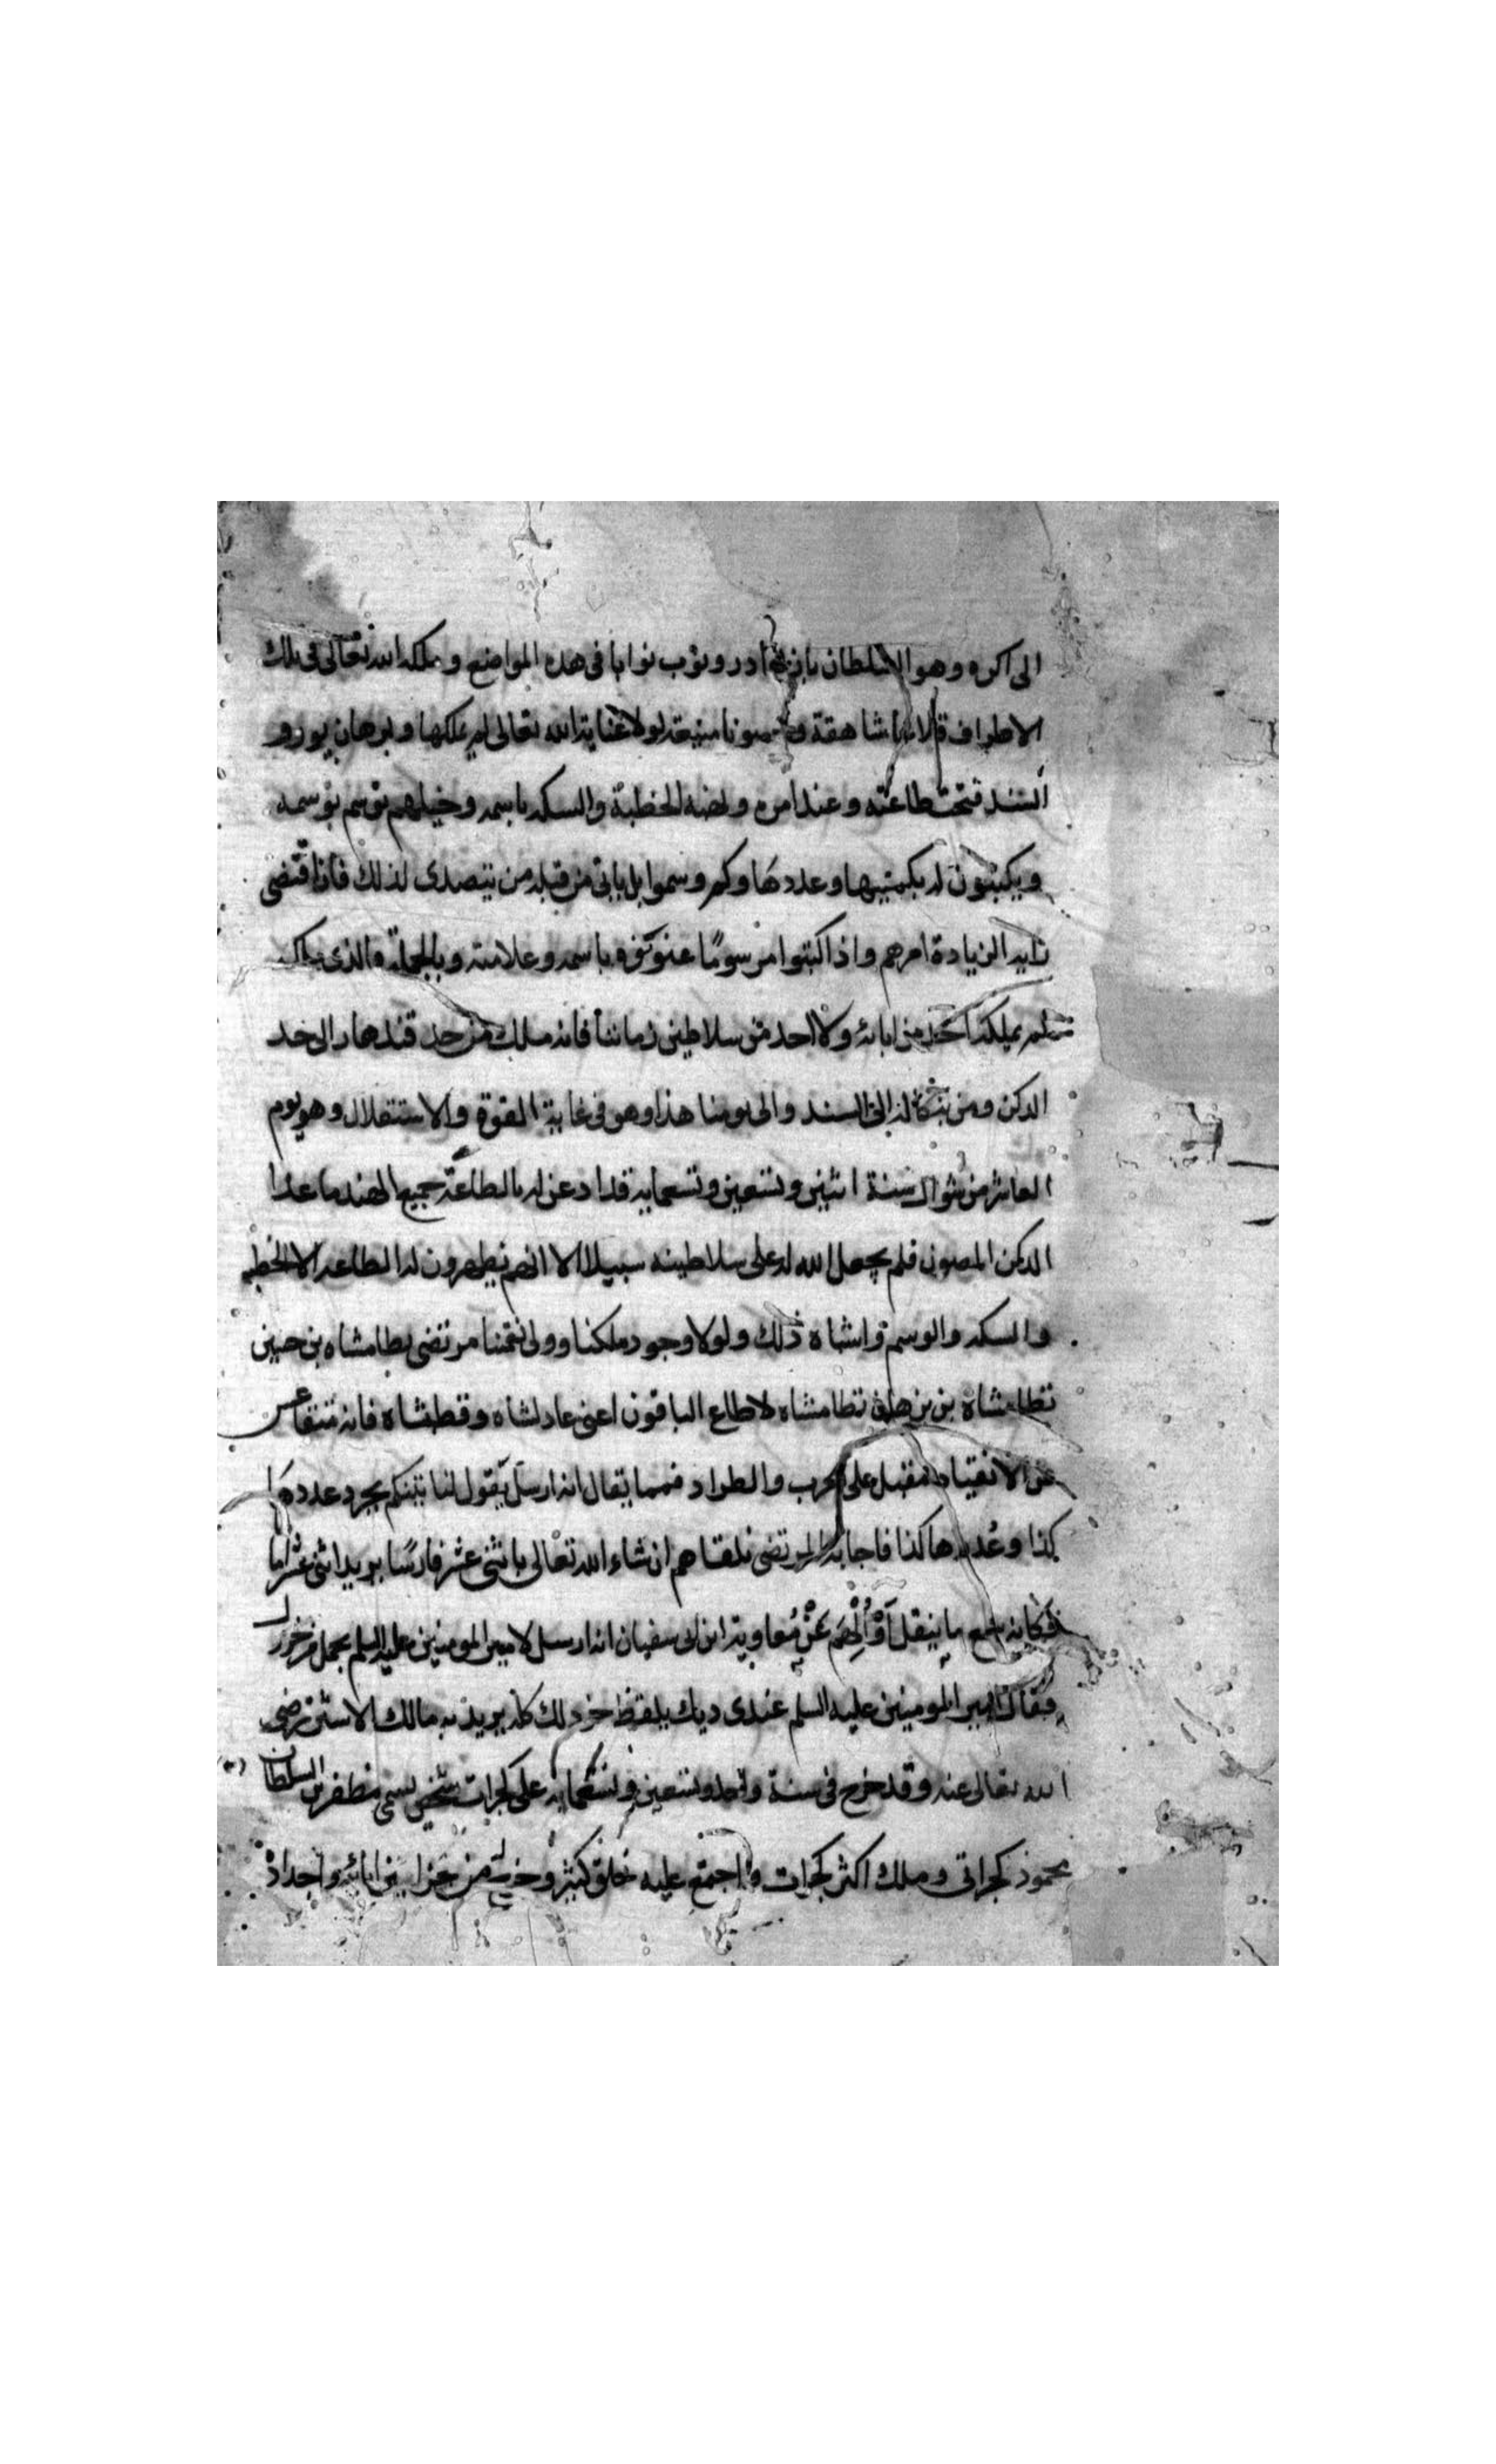 الى اكره وهو السلطان بابن بهادر ونوب نوابا فى هذه المواضع وملكه الله تعالى فى تلك
الاطراف قلاعا شاهقة وحصونا منيعة لولا عناية الله تعالى لم يملكها وبرهان پور و
السند فتحت طاعته وعند امره ولضه الخطبة والسكه باسمه وخيلهم توسم بوسمه
ويكتبون له بكميتها وعددها وكم وسموا بل ياتى من قبله من يتصدى لذلك فاذا اقتضى
رايه الزيادة امرهم واذا كتبوا مرسومًا عنونوه باسمه وعلامته وبالجملة فالذى ملكه
لم يملكه احد من ابائه ولا احد من سلاطين زماننا فانه ملك من حد قندهار الى حد
الدكن ومن بنكاله الى السند والى يومنا هذا وهو فى غاية القوة والاستقلال وهو يوم
العاشر من شوال سنة اثنين وتسعين وتسعمايه قد اذعن له بالطاعة جميع الهند ما عدا
الدكن المصون فلم يجعل الله له على سلاطينه سبيلا الا انهم يظهرون له الطاعه الا الخطبه
والسكه والوسم واشباه ذلك ولولا وجود ملكنا وولى نعمتنا مرتضى نظامشاه بن حسين
نظامشاه بن برهان نظامشاه لاطاع الباقون اعنى عادلشاه وقطبشاه فانه متقاعس
عن الانقياد مقبل على الحرب والطراد فمما يقال انه ارسل يقول لنا نتينكم بجرد عددها
كذا وعُددها كذا فاجابه المرتضى نلقاهم ان شاء الله تعالى باثنى عشر فارسًا يريد اثنى عشر اماما
فكانه سمع ما ينقل عَنْ مُعاوية ابن ابى سفيان انه ارسل لامير المومنين عليه السلم بحمل من خردل
فقال امير المومنين عليه السلم عندى ديك يلقط خردلك كله يريد به مالك الاشتر رضى
الله تعالى عنه وقد خرج فى سنة واحد وتسعين وتسعمايه على كجرات شخص يسمى مظفر بن السلطان
محمود كجراتى وملك اكثر كجرات واجتمع عليه خلق كثير وخزاين من خزاين ابائه واجداد